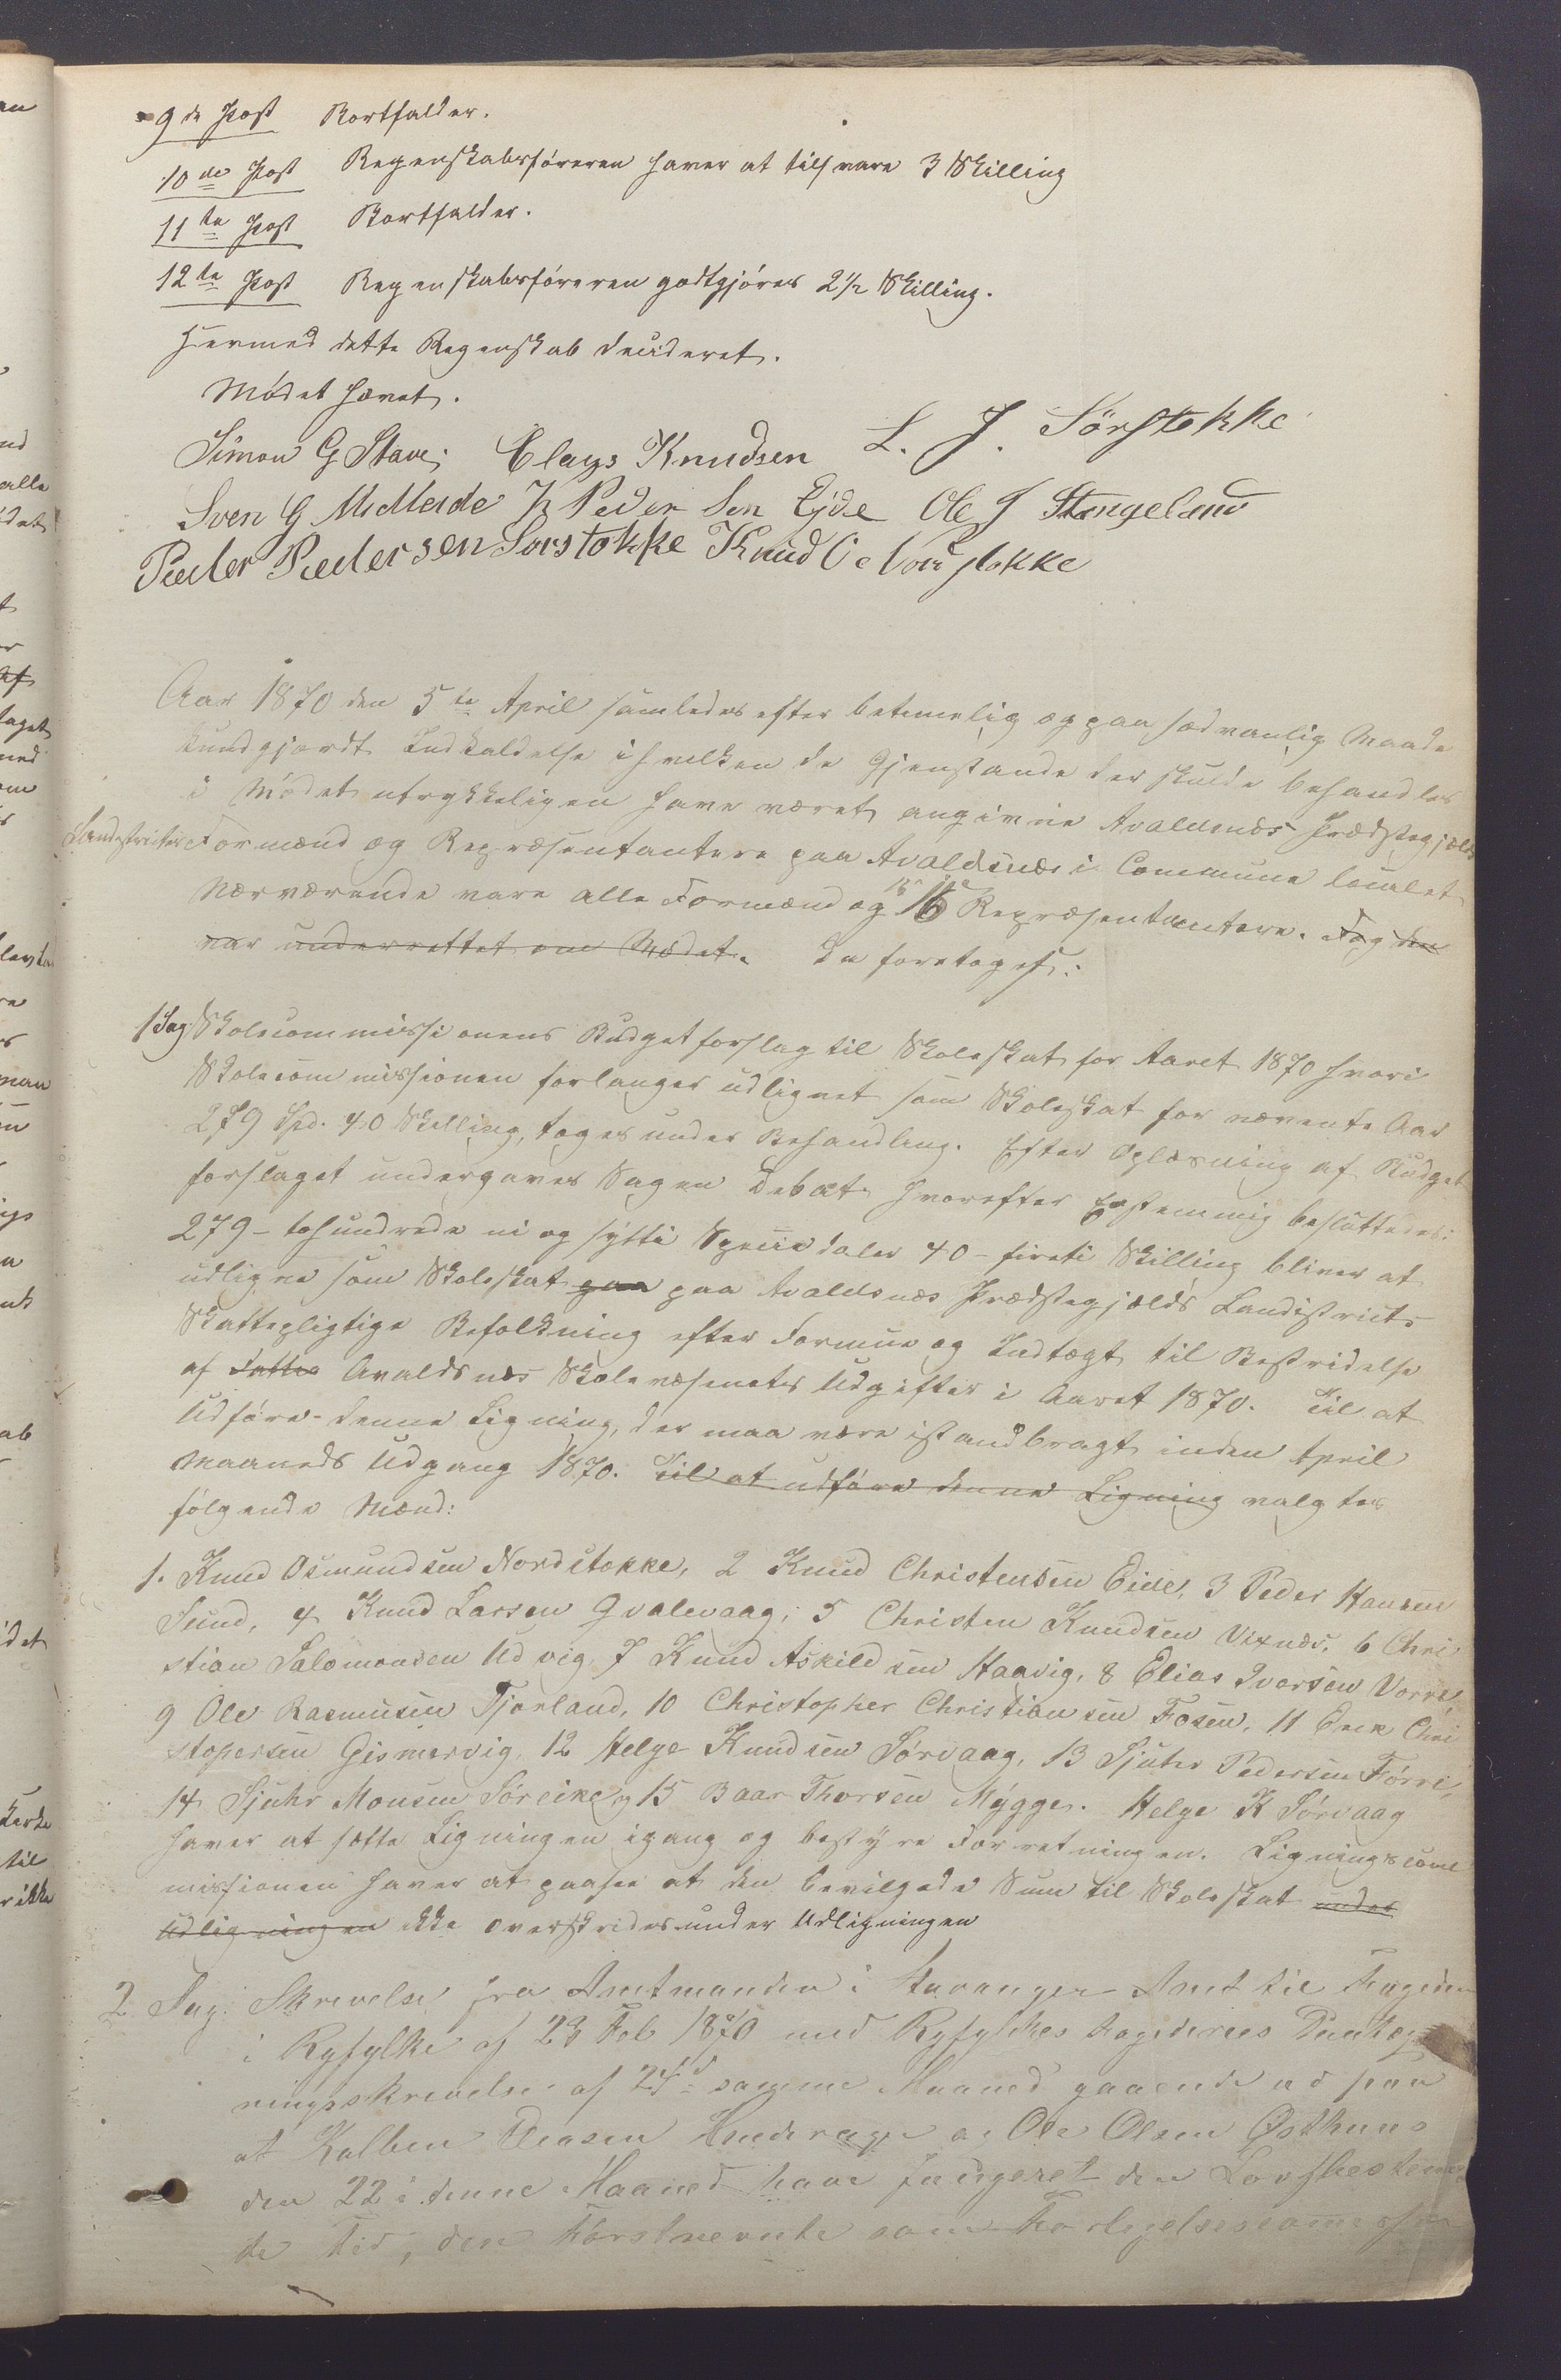 9de Post Bortfalder.
10de Post Regenskabsføreren haver at tilsvare 3 Skilling
11te Post Bortfalder.
12te Post Regenskabsføreren godtgjøres 2 1/2 Skilling.
Hermed dette Regenskab decideret.
Mødet hævet.
Simon G Stave; Clays Knudsen L. J. Sörstokke
Sven G Midteide K Peder Sen Ejde Ole J Stangeland
Peeder Peedersen Sorstokke Knud O Nordstokke
Aar 1870 den 5te April samledes efter betimelig og paa sædvanlig Maade
kundgjordt Indkaldelse i hvilken de Gjenstande der skulde behandles
i Mødet utrykkeligen have været angivne Avaldsnæs Prædstegjælds
Landistricts Formænd og Repræsentantere paa Avaldsnæs i Commune localet
Nærværende vare alle Formænd og 15 Repræsentantere. Dog den
var underrettet om Mødet. Da foretoges:
1 Sag: Skolecommissionens Budgetforslag til Skoleskat for Aaret 1870 hvori
Skolecommissionen forlanger udlignet som Skoleskat for nævnte Aar
279 Spd. 40 Skilling, toges under Behandling. Efter Oplæsning af Budget
forslaget undergaves Sagen Debat hvorefter Enstemmig besluttedes:
279 – tohundrede ni og sytti Speciedaler 40 – fireti Skilling bliver at
udligne som Skoleskat paa paa Avaldsnæs Prædstegjælds Landistricts
Skattepligtige Befolkning efter Formue og Indtægt til Bestridelse
af Dette Avaldsnæs Skolevæsenets Udgifter i Aaret 1870. Til at
Udføre denne Ligning, der maa være istandbragt inden April
Maaneds Udgang 1870. Til at udføre denne Ligning valgtes
følgende Mænd:
1. Knud Osmundsen Nordstokke, 2 Knud Christensen Eide, 3 Peder Hansen
Sund, 4 Knud Larsen Qvalevaag, 5 Christen Knudsen Vixnæs, 6 Chri
stian Salomonsen Udvig, 7 Knud Askildsen Haavig, 8 Elias Iversen Vorre
9 Ole Rasmusen Tjøsland, 10 Christopher Christiansen Fosen, 11 Erik Chri
stopersen Gismervig, 12 Helge Knudsen Sørvaag, 13 Sjuhr Pedersen Førre,
14 Sjuhr Monsen Søreike og 15 Baar Thorsen Mygge. Helge K Sørvaag
haver at sætte Ligningen igang og bestyre Forretningen. Ligningscom
missionen haver at paasee at den bevilgede Sum til Skoleskat under
Udligningen ikke overskrides under Udligningen
2 Sag: Skrivelse fra Amtmanden i Stavanger Amt til Fogden
i Ryfylke af 23 Feb 1870 med Ryfylkes Fogderies
af 24d samme Maaned gaaende ud paa
at Kolben og Ole Olsen Østhuus
den 22 i denne Maaned have fungeret den Lovbestem
te Tid, den Førstnevnte som Forligelsescommissær